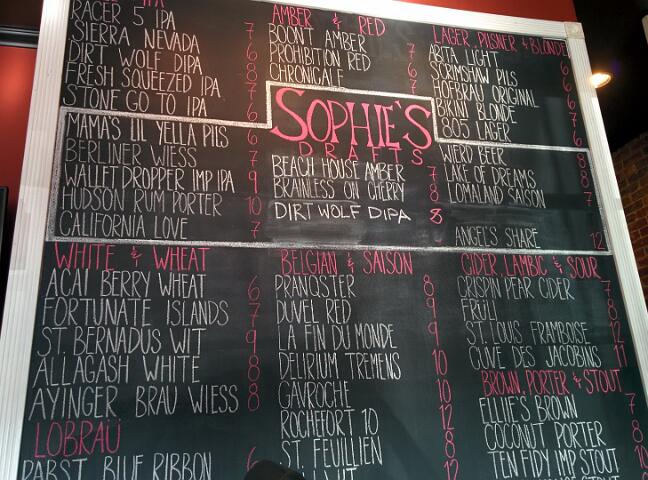 IPA
RACER 5 IPA 7
SIERRA NEVADA 6
DIRT WOLF DIPA 8
FRESH SQUEEZED IPA 7
STONE GO TO IPA 6
MAMA'S LIL YELLA PILS 6
BERLINER WIESS 7
WALLET DROPPER IMP IPA 9
HUDSON RUM PORTER 10
CALIFORNIA LOVE 7
WHITE & WHEAT
ACAI BERRY WHEAT 6
FORTUNATE ISLANDS 7
ST. BERNADUS WIT 9
ALLAGASH WHITE 8
AYINGER BRAU WIESS 8
LOBRAÜ
PABST BLUE RIBBON 6
AMBER & RED
BOONT AMBER 7
PROHIBITION RED 6
CHRONICALE 7
SOPHIE'S
DRAFTS
BEACH HOUSE AMBER 7
BRAINLESS ON CHERRY 8
DIRT WOLF DIPA 8
BELGIAN & SAISON
PRANQSTER 8
DUVEL RED 9
LA FIN DU MONDE 9
DELIRIUM TREMENS 10
GAVROCHE 10
ROCHEFORT 10 12
ST. FEUILLIEN 8
WIT 12
LAGER, PILSNER & BLONDE
ABITA LIGHT 6
SCRIMSHAW PILS 6
HOFBRAU ORIGINAL 7
BIKINI BLONDE 6
805 LAGER 7
WERD BEER 8
LAKE OF DREAMS 8
LOMALAND SAISON 7
ANGEL'S SHARE 12
CIDER, LAMBIC & SOUR
CRISPIN PEAR CIDER 7
FRÜLI 8
ST. LOUIS FRAMBOISE 12
CUVE DES JACOBINS 11
BROWN, PORTER & STOUT
ELLIE'S BROWN 7
COCONUT PORTER 8
TEN FIDY IMP STOUT 10
STOUT